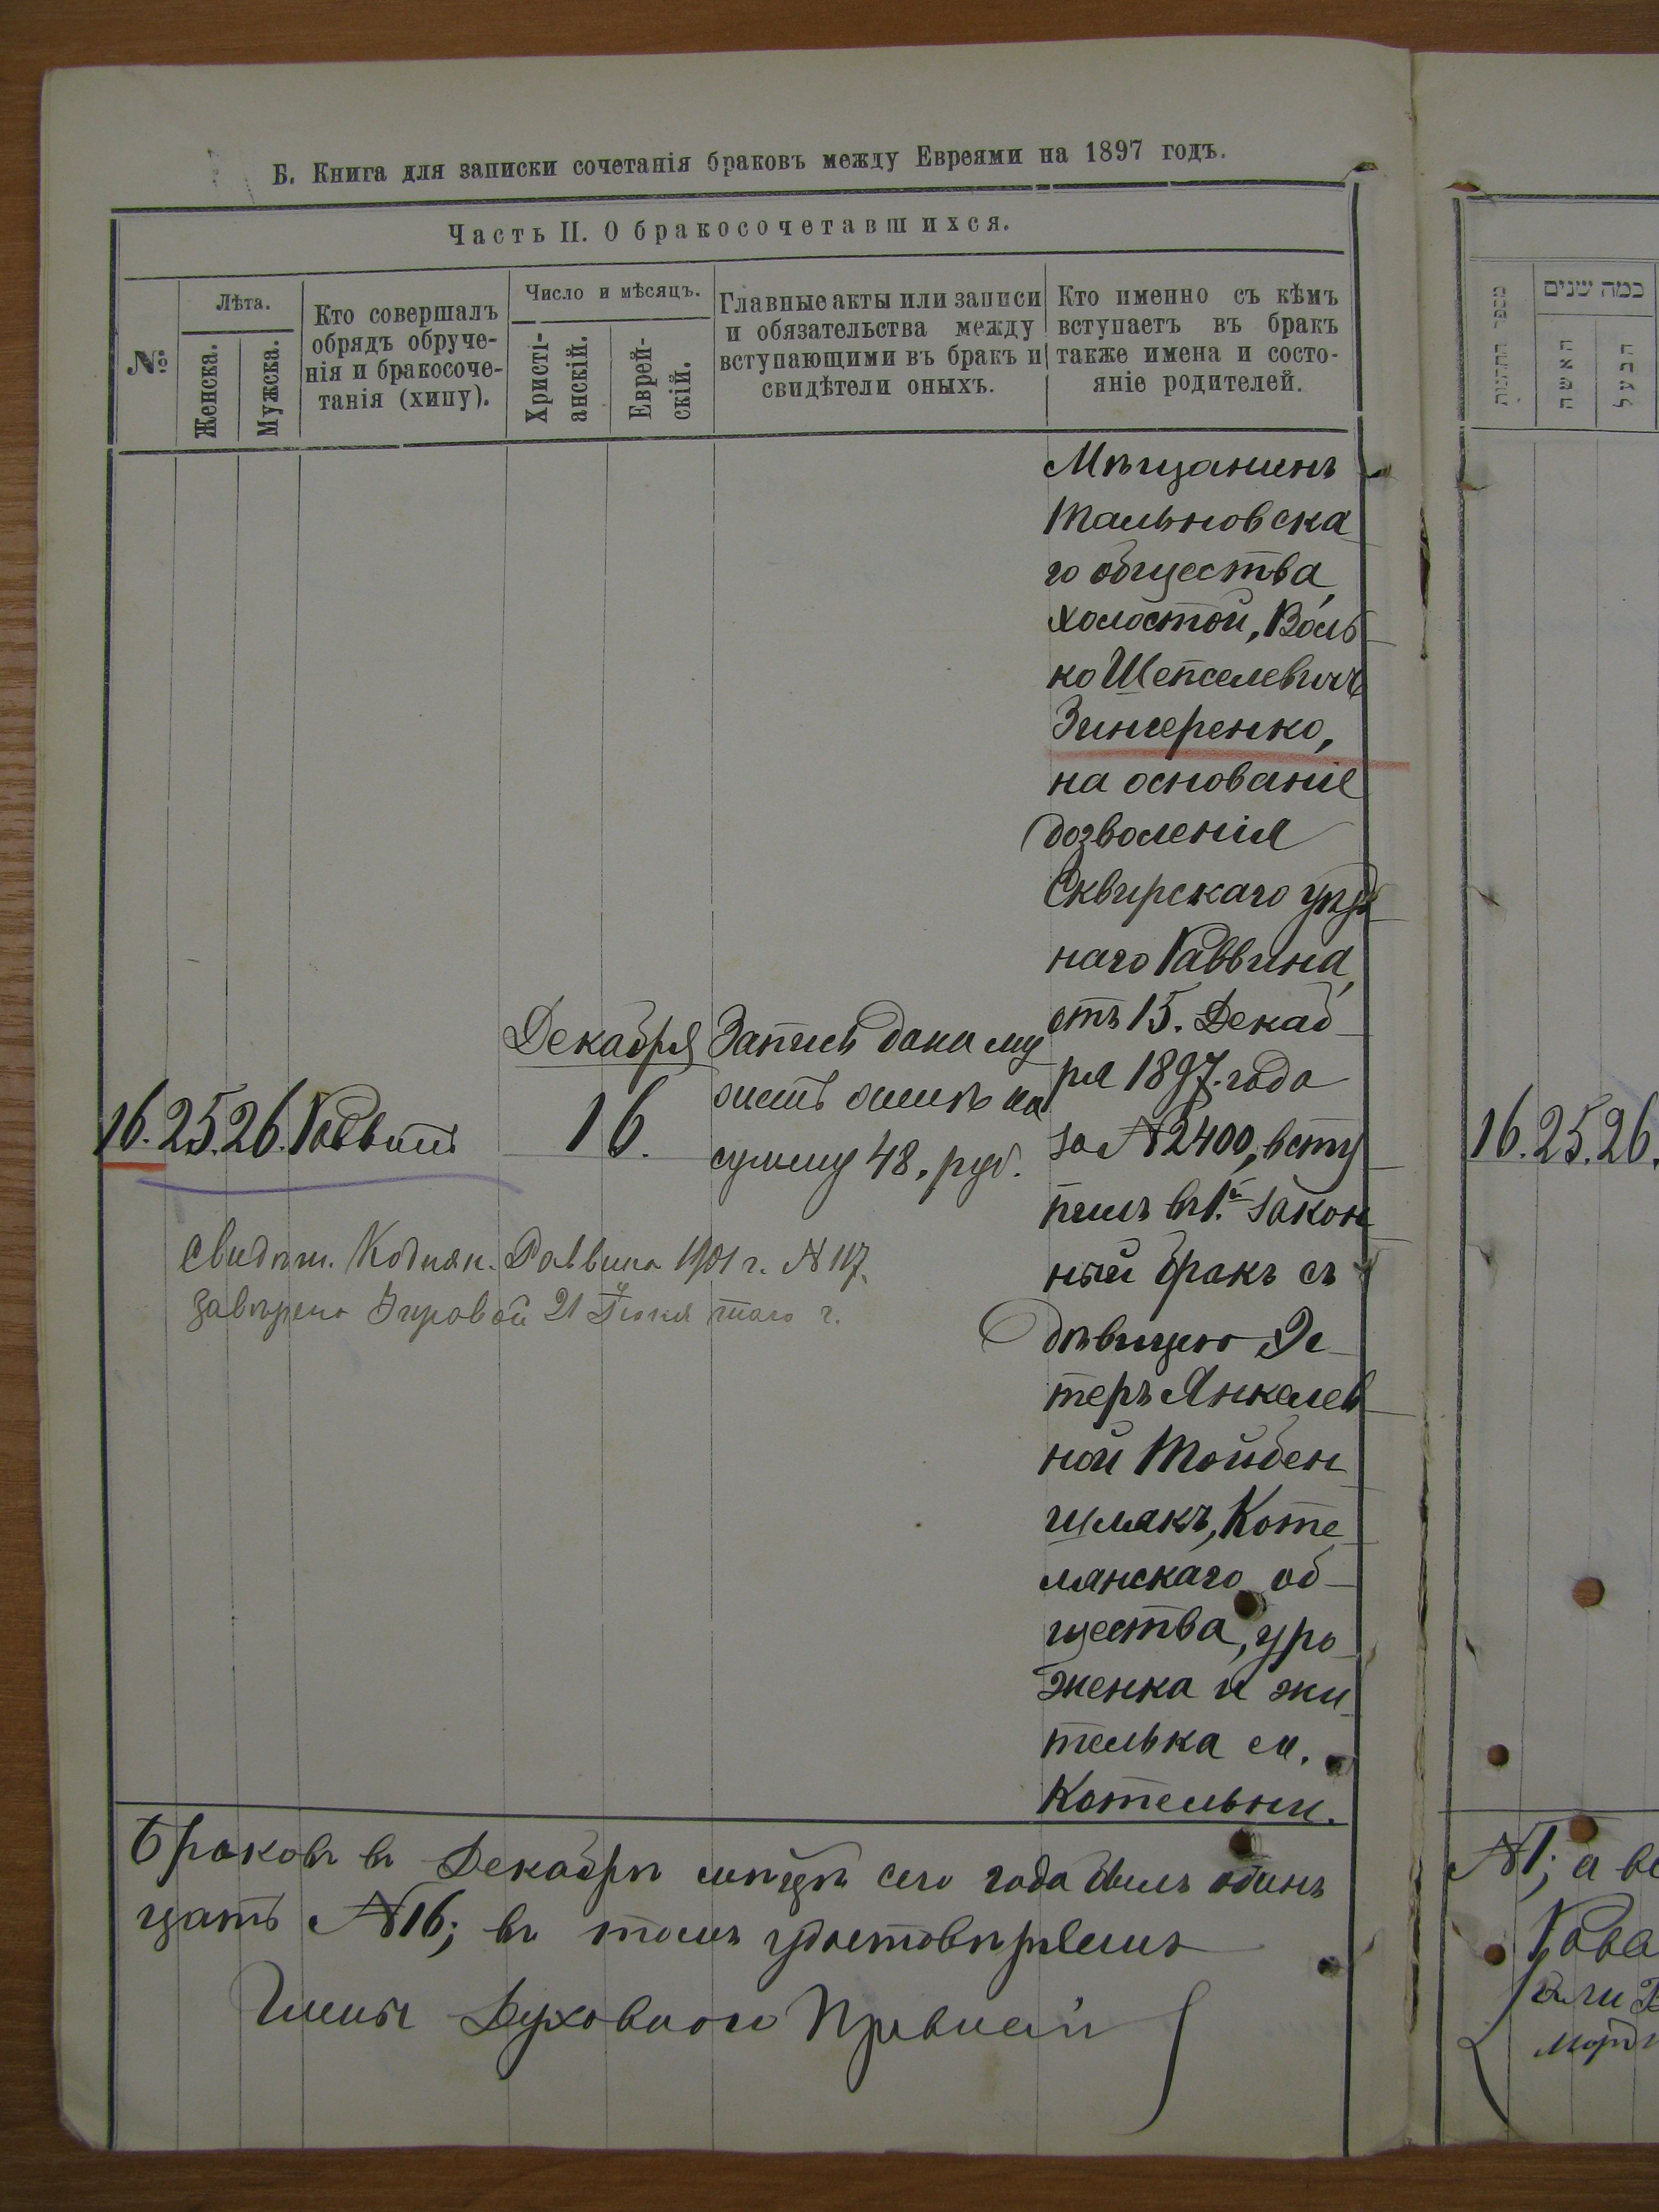 Б. Книга для записки сочетанія браковъ между Евреями на 1897 годъ.
Часть II. О бракосочетавшихся.
№
Лѣта.
Женска.
Мужска.
Кто совершалъ
обрядъ обруче-
нія и бракосоче-
танія (хипу).
Число и мѣсяцъ.
Христі-
анскій.
Еврей-
скій.
Главные акты или записи
и обязательства между
вступающими въ бракъ и
свидѣтели оныхъ.
Кто именно съ кѣмъ
вступаетъ въ бракъ
также имена и состо-
яніе родителей.
מספר החתנות
כמה שנים
האשה
הבעל
Мѣщанинъ
Тальновска
го общества,
холостой,Воль
ко Шепселевичъ
Зингеренко,
на основаніе
дозволенія
Сквирскаго уѣзд
наго Раввина,
отъ 15. Декаб
ря 1897. года
за №2400, всту
пилъ въ 1.й закон
ный бракъ съ
дѣвицею Эс
теръ Янкелев
ной Тойбен
шлакъ, Коте
лянскаго об
щества, уро
женка и жи
телька м.
Котельни.
Декабря
16.
Запись дана му
жемъ женѣ на
сумму 48. руб.
16. 25. 26. Раввинъ
свидѣт. Коднян. Раввина 1901 г. №117.
завѣрено 21 Іюня того г.
Браковъ въ Декабрѣ мѣсяцѣ сего года былъ одинъ
№16; въ томъ удостовѣряемъ
Члены Духовнаго Правленія
16. 25. 26.
№1; а вс